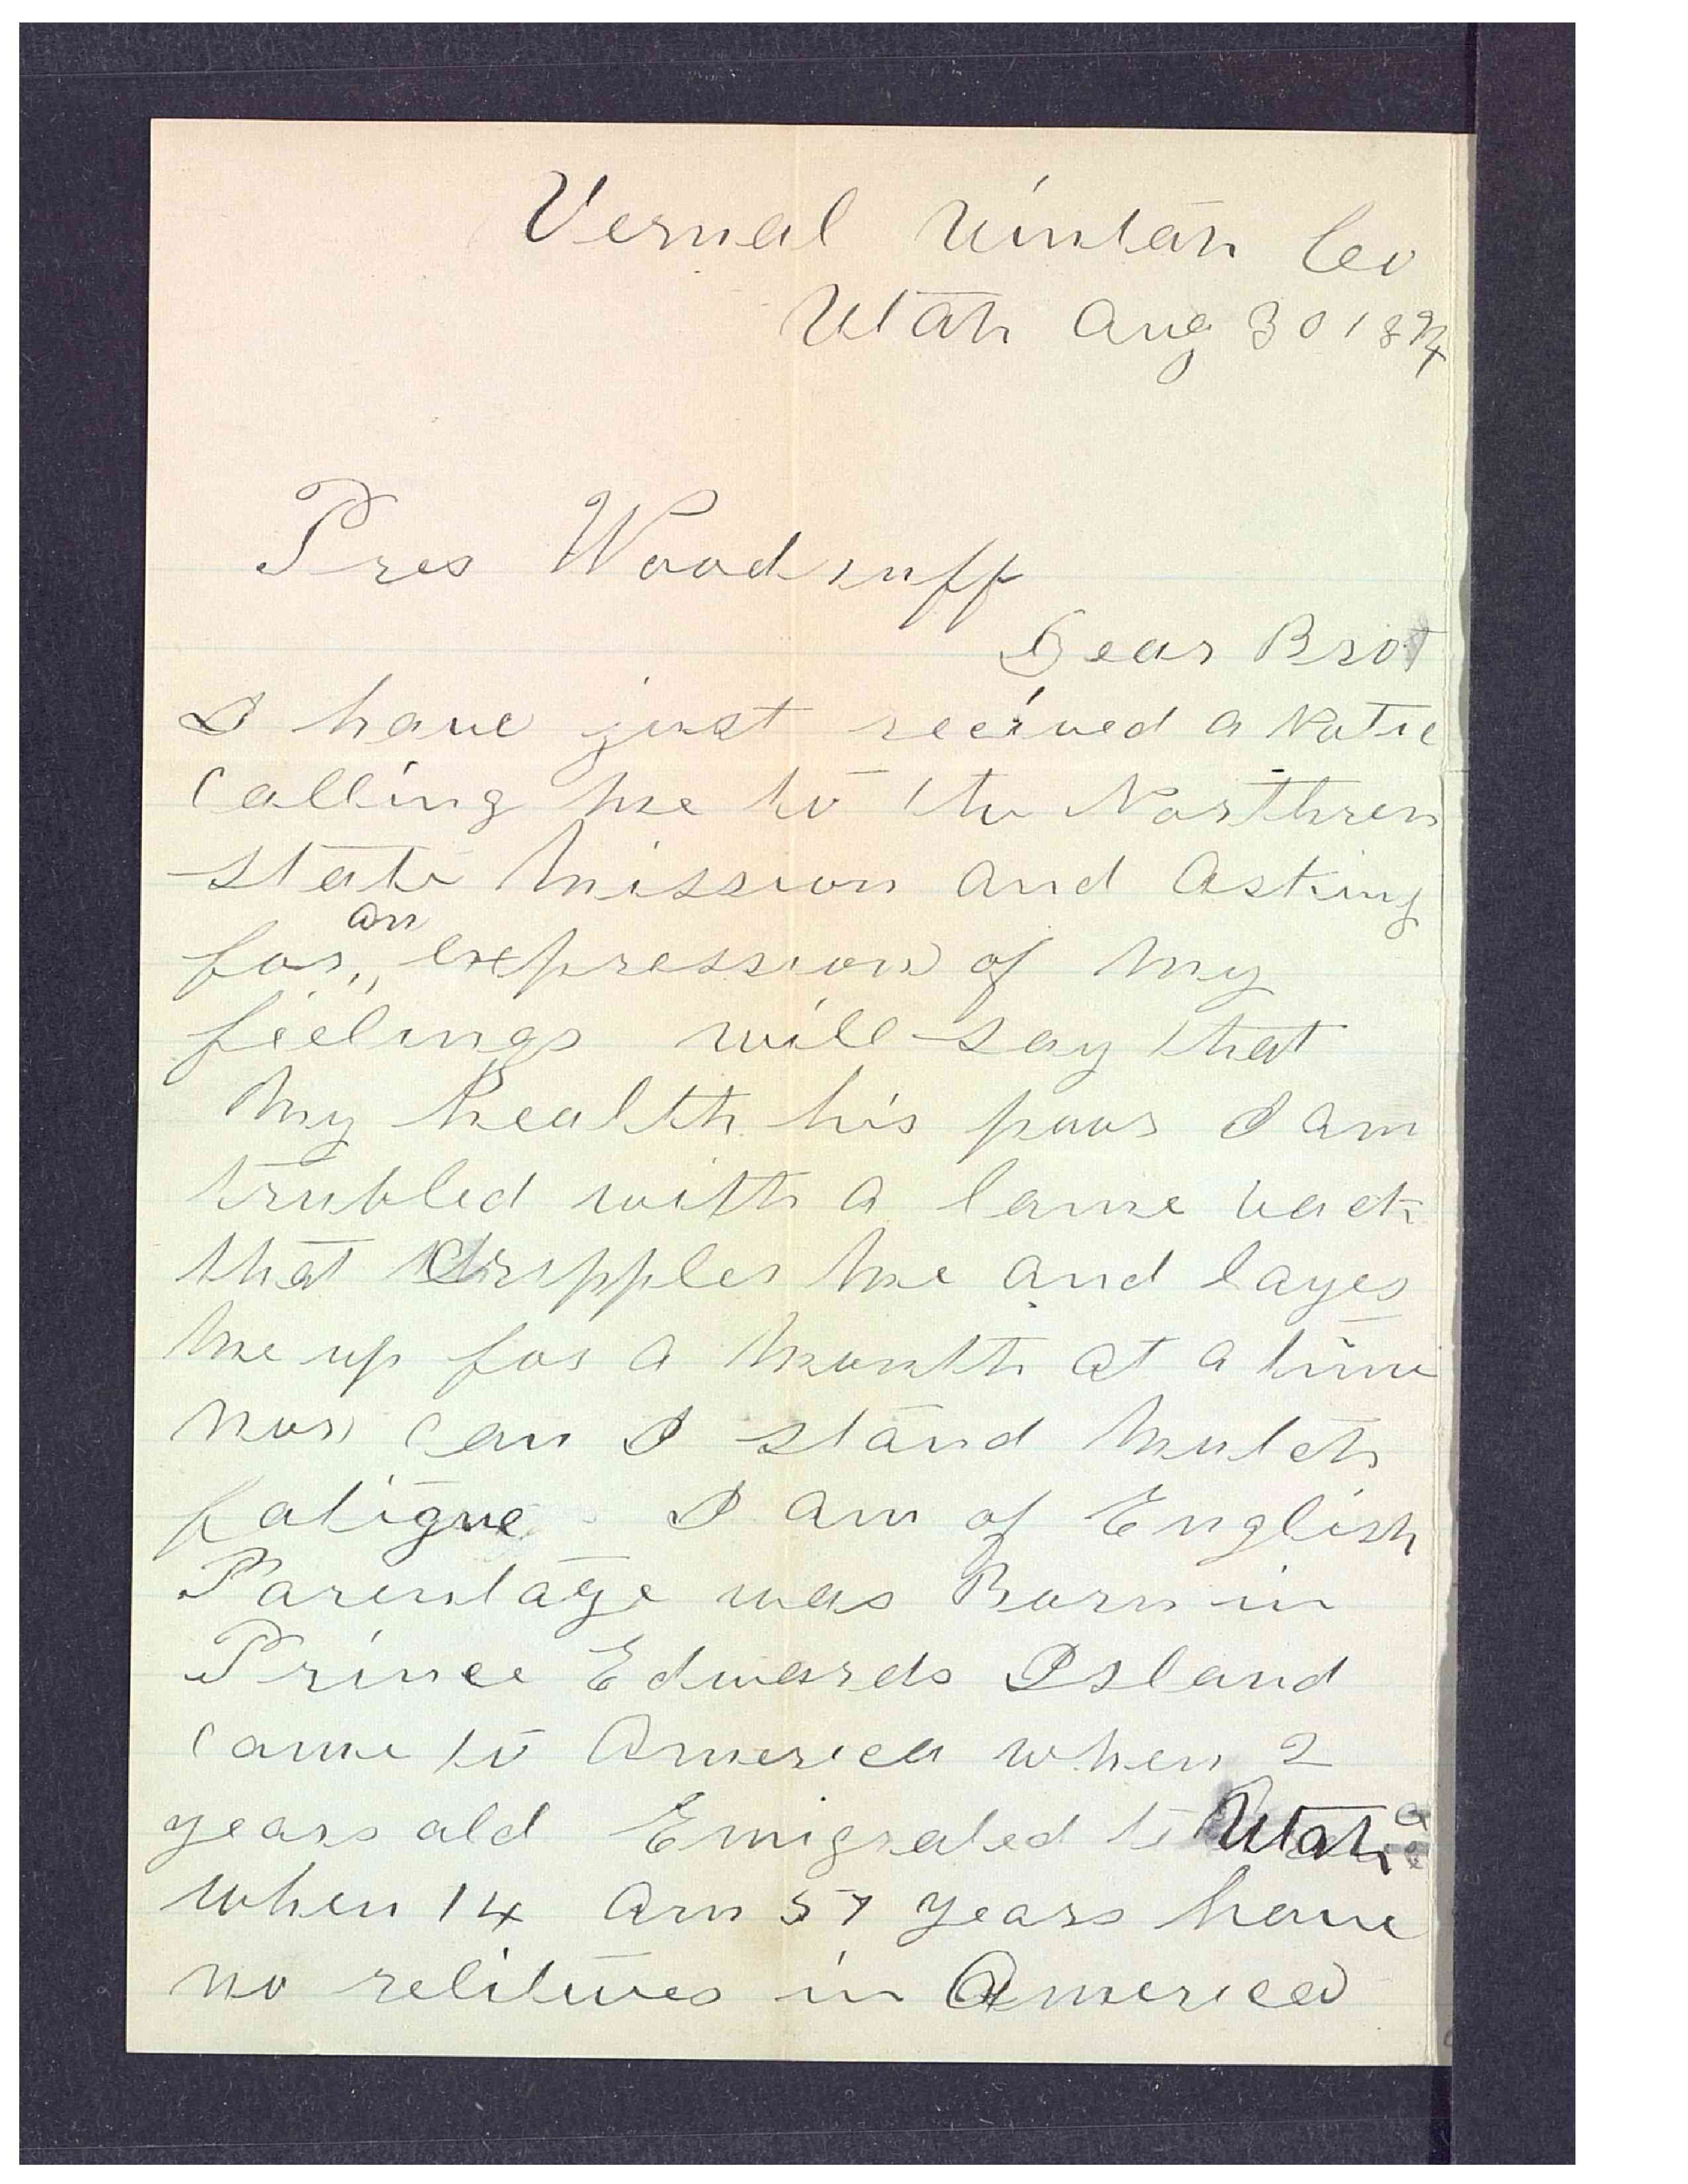 Vernal Uintah Co
Utah Aug 30 1894
Pres Woodruff
Dear Brot
I have just recived a Notic
calling me to the Northren
state mission and asking
for an expression of my
feelings will say that
my health his poor I am
trubled with a lame back
that cripples me and layes
me up for a month at a time
nor can I stand mutch
fatigue I am of English
Parentage was Born in
Prince Edwards Island
came to America when 2
years old Emigrated to Utah
when 14 am 57 years have
no relitives in America